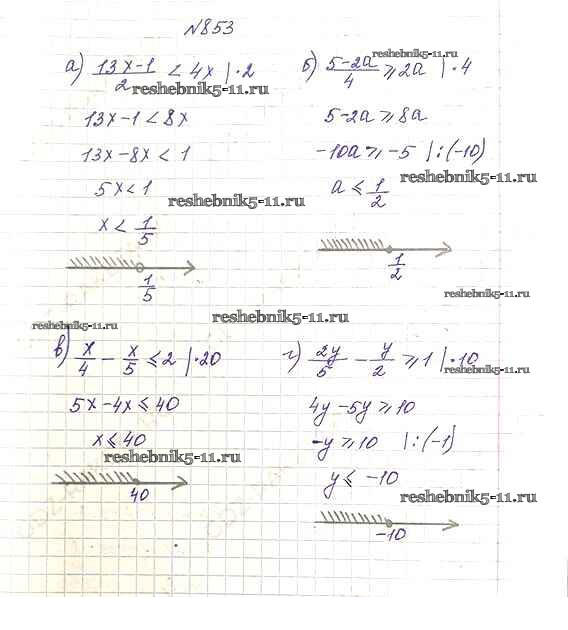 №853
а) (13x-1)/2 < 4x |·2
reshebnik5-11.ru
13x-1<8x
13x-8x<1
5x<1
reshebnik5-11.ru
x< 1/5
1/5
б) (5-2a)/4 ⩾ 2a |·4
reshebnik5-11.ru
5-2a⩾8a
-10a⩾-5 |:(-10)
a⩽ 1/2
reshebnik5-11.ru
1/2
reshebnik5-11.ru
reshebnik5-11.ru
reshebnik5-11.ru
в) x/4 - x/5 ⩽2 |·20
5x-4x⩽40
x⩽40
reshebnik5-11.ru
40
г) 2y/5 - y/2 ⩾1 |·10
reshebnik5-11.ru
4y-5y⩾10
-y⩾10 |:(-1)
y⩽ -10
reshebnik5-11.ru
-10